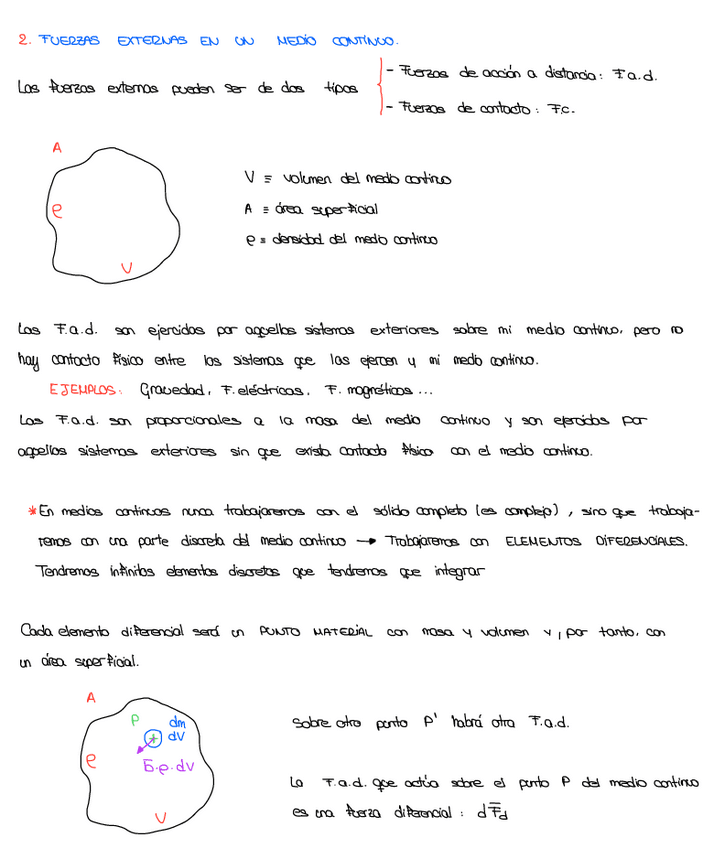 2. FUERZAS EXTERNAS EN UN MEDIO CONTINUO.
Las fuerzas externas pueden ser de dos tipos
- Fuerzas de acción a distancia: F.a.d.
- Fuerzas de contacto: F.c.
A
ρ
V
V ≡ volumen del medio continuo
A ≡ área superficial
ρ ≡ densidad del medio continuo
Las F.a.d. son ejercidas por aquellos sistemas exteriores sobre mi medio continuo, pero no
hay contacto físico entre los sistemas que las ejercen y mi medio continuo.
EJEMPLOS: Gravedad, F. eléctricas, F. magnéticas ...
Las F.a.d. son proporcionales a la masa del medio continuo y son ejercidas por
aquellos sistemas exteriores sin que exista contacto físico con el medio continuo.
* En medios continuos nunca trabajaremos con el sólido completo (es complejo), sino que trabaja-
remos con una parte discreta del medio continuo → Trabajaremos con ELEMENTOS DIFERENCIALES.
Tendremos infinitos elementos discretos que tendremos que integrar
Cada elemento diferencial será un PUNTO MATERIAL con masa y volumen y, por tanto, con
un área superficial.
A
P
dm
dV
ρ
b̅·ρ·dV
V
Sobre otro punto P' habrá otra F.a.d.
La F.a.d. que actúa sobre el punto P del medio continuo
es una fuerza diferencial: dF̅d